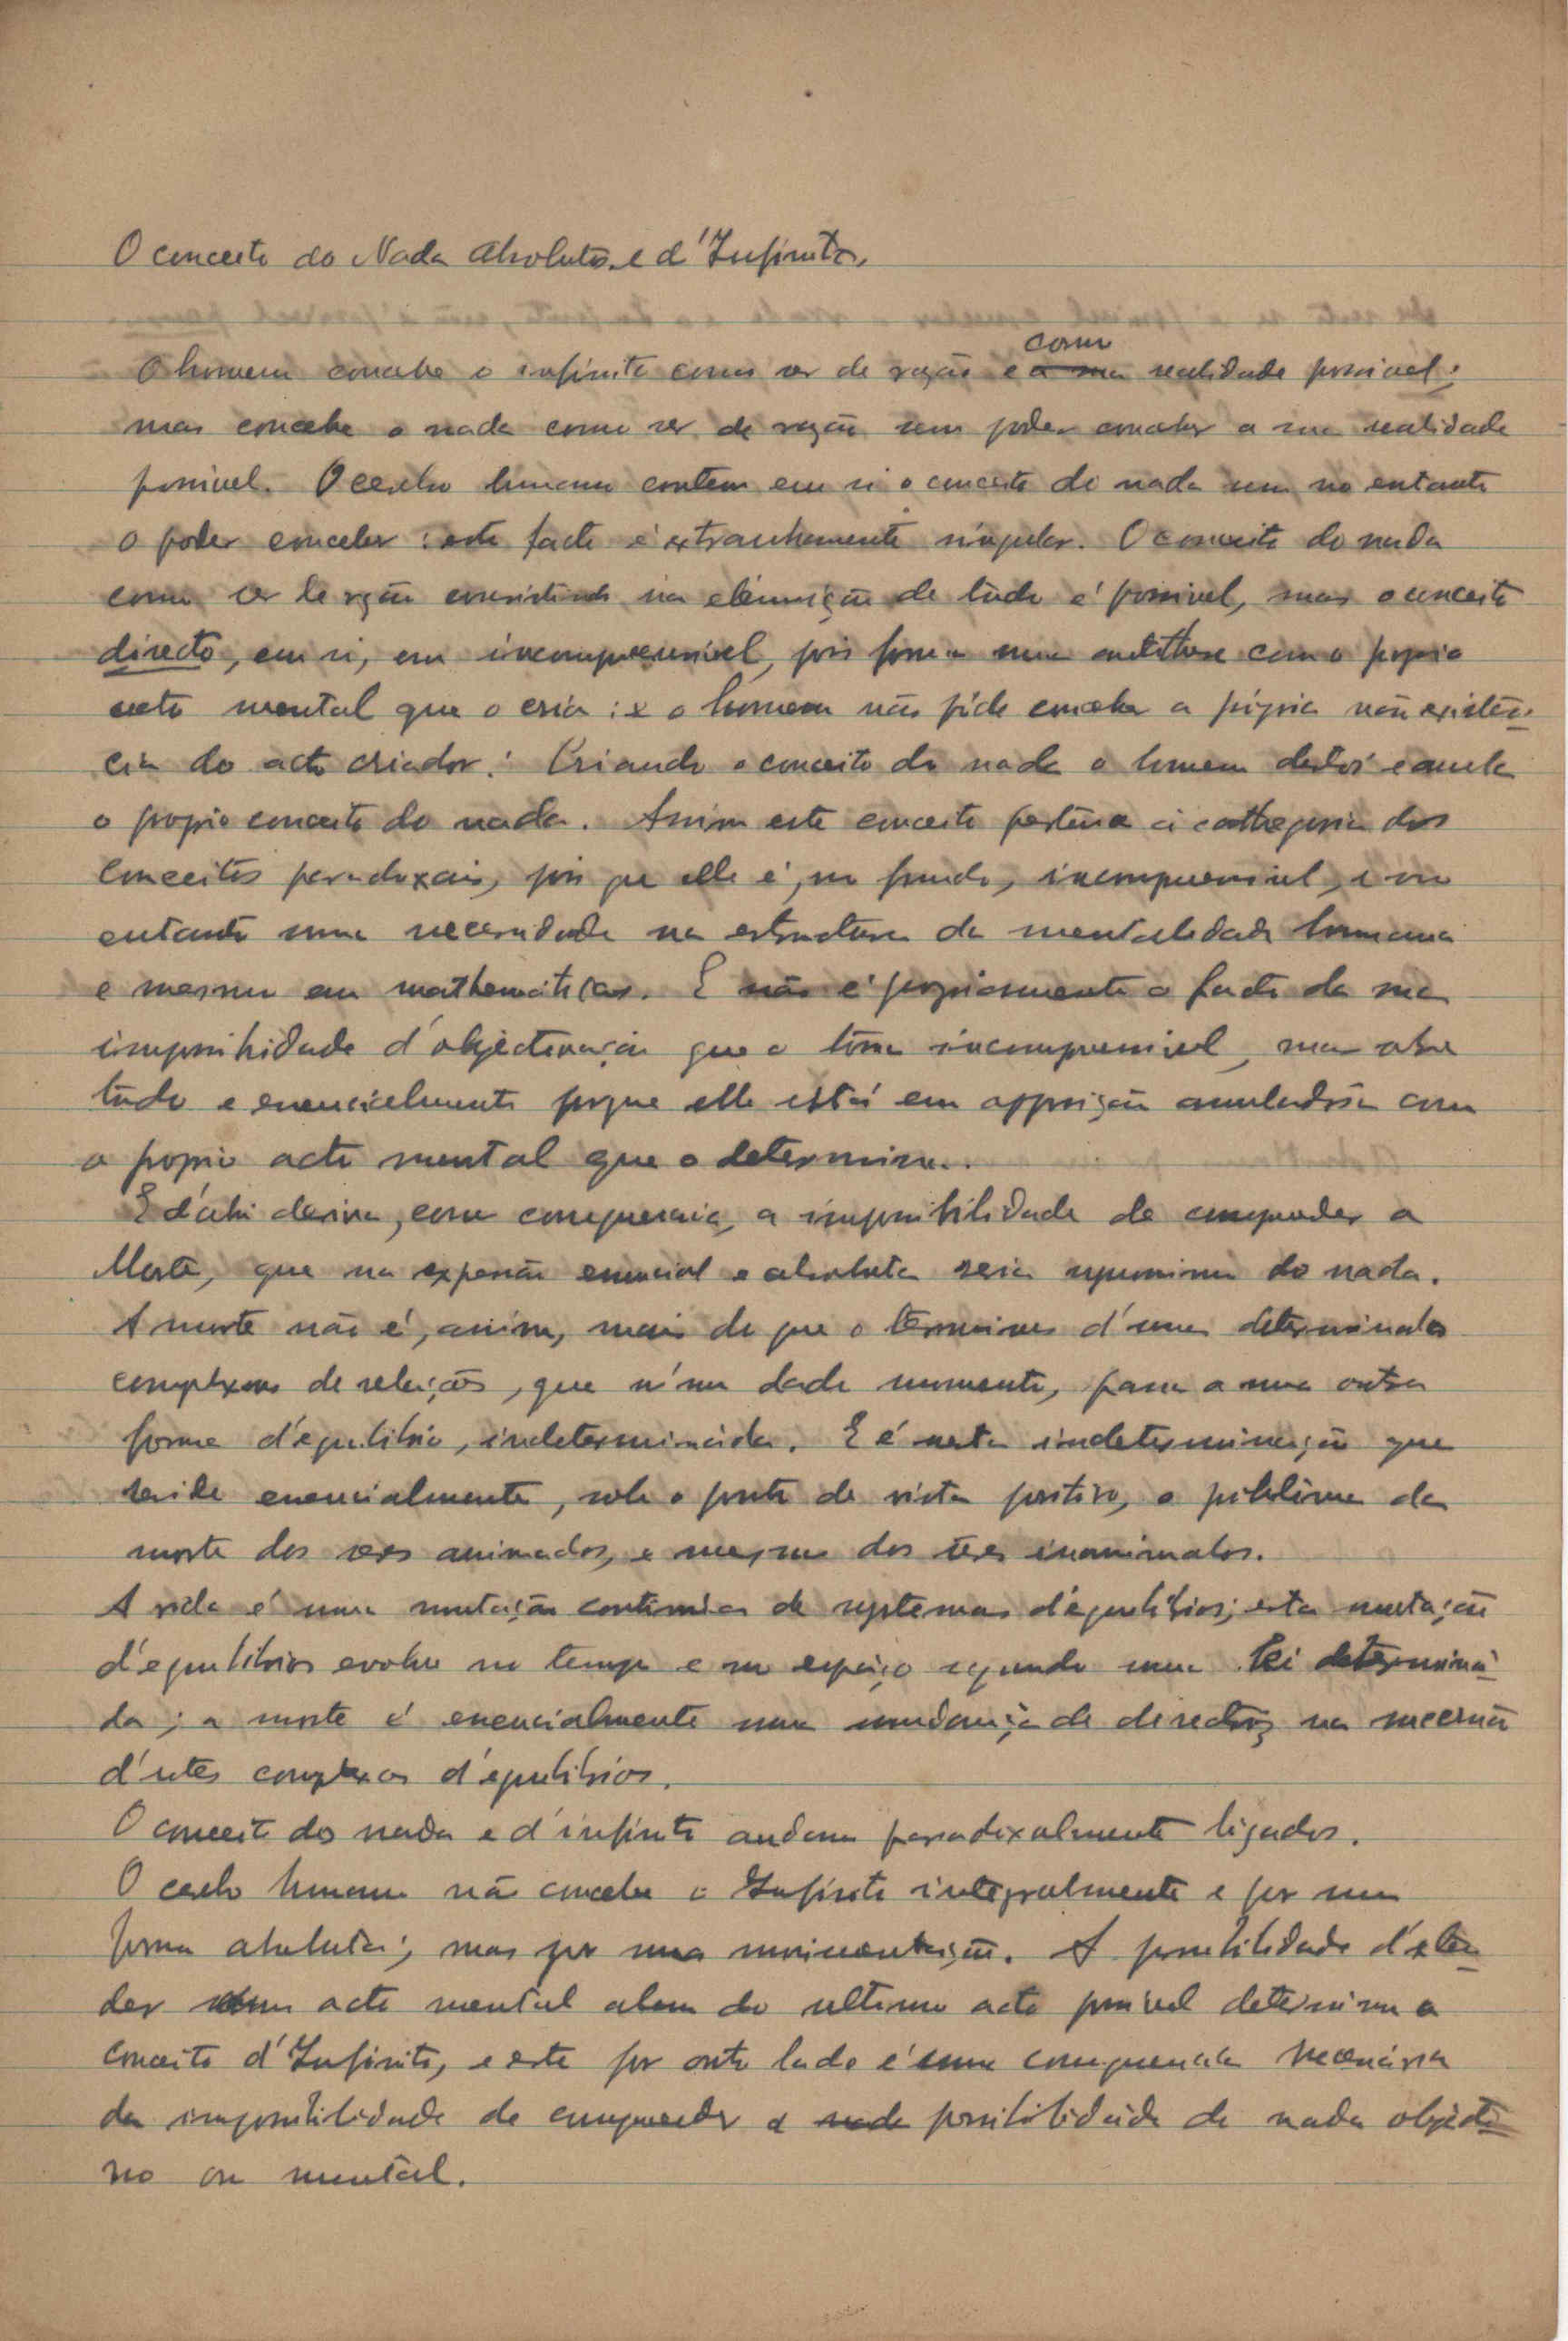 O conceito do Nada Absoluto e d'Infinito.
O homem concebe o infinito como ser de razão e como realidade possivel;
mas concebe o nada como ser de razão sem poder conceber a sua realidade
possivel. O cerebro humano contem em si o conceito do nada sem no entanto
o poder conceber: este facto é extranhamente singular. O conceito do nada
como ser de razão consistindo na eliminação de tudo é possivel, mas o conceito
directo, em si, incomprensivel, pois forma uma antithese com o proprio
acto mental que o cria: o homem não póde conceber a própria não existên-
cia do acto criador. Criando o conceito do nada o homem destroi e anula
o proprio conceito do nada. Assim este conceito pertence á cathegoria dos
conceitos paradoxais, pois que elle é, no fundo, incomprensivel, e no
entanto uma necessidade na estructura da mentalidade humana
e mesmo em mathematicas. E não é propriamente o facto da sua
impossibilidade d'objectivação que o torna incomprensivel, mas sobre
tudo e essencialmente porque elle está em opposição anuladora com
o proprio acto mental que o determina.
E d'ahi deriva, como consequencia, a impossibilidade de comprender a
Morte, que na expressão essencial e absoluta seria synonimo do nada.
A morte não é, assim, mais do que o terminus d'uns determinados
complexos de relações, que n'um dado momento, passa a uma outra
forma d'equilibrio, indeterminada. E é nesta indeterminação que
reside essencialmente, sob o ponto de vista positivo, o problema da
morte dos seres animados, e mesmo dos seres inanimados.
A vida é uma mutação continua de systemas d'equilibrios; esta mutação
d'equilibrios evolue no tempo e no espaço segundo uma lei determina-
da; a morte é essencialmente uma mudança de direcção na successão
d'estes complexos d'equilibrios.
O conceito do nada e d'infinito andam paradoxalmente ligados.
O cerebro humano não concebe o Infinito integralmente e por uma
forma absoluta; mas por uma movimentação. A possibilidade d'esten-
der um acto mental alem do ultimo acto possivel determina o
conceito d'Infinito, e este por outro lado é uma consequencia necessária
da impossibilidade de comprender a possibilidade de nada objecti-
vo ou mental.